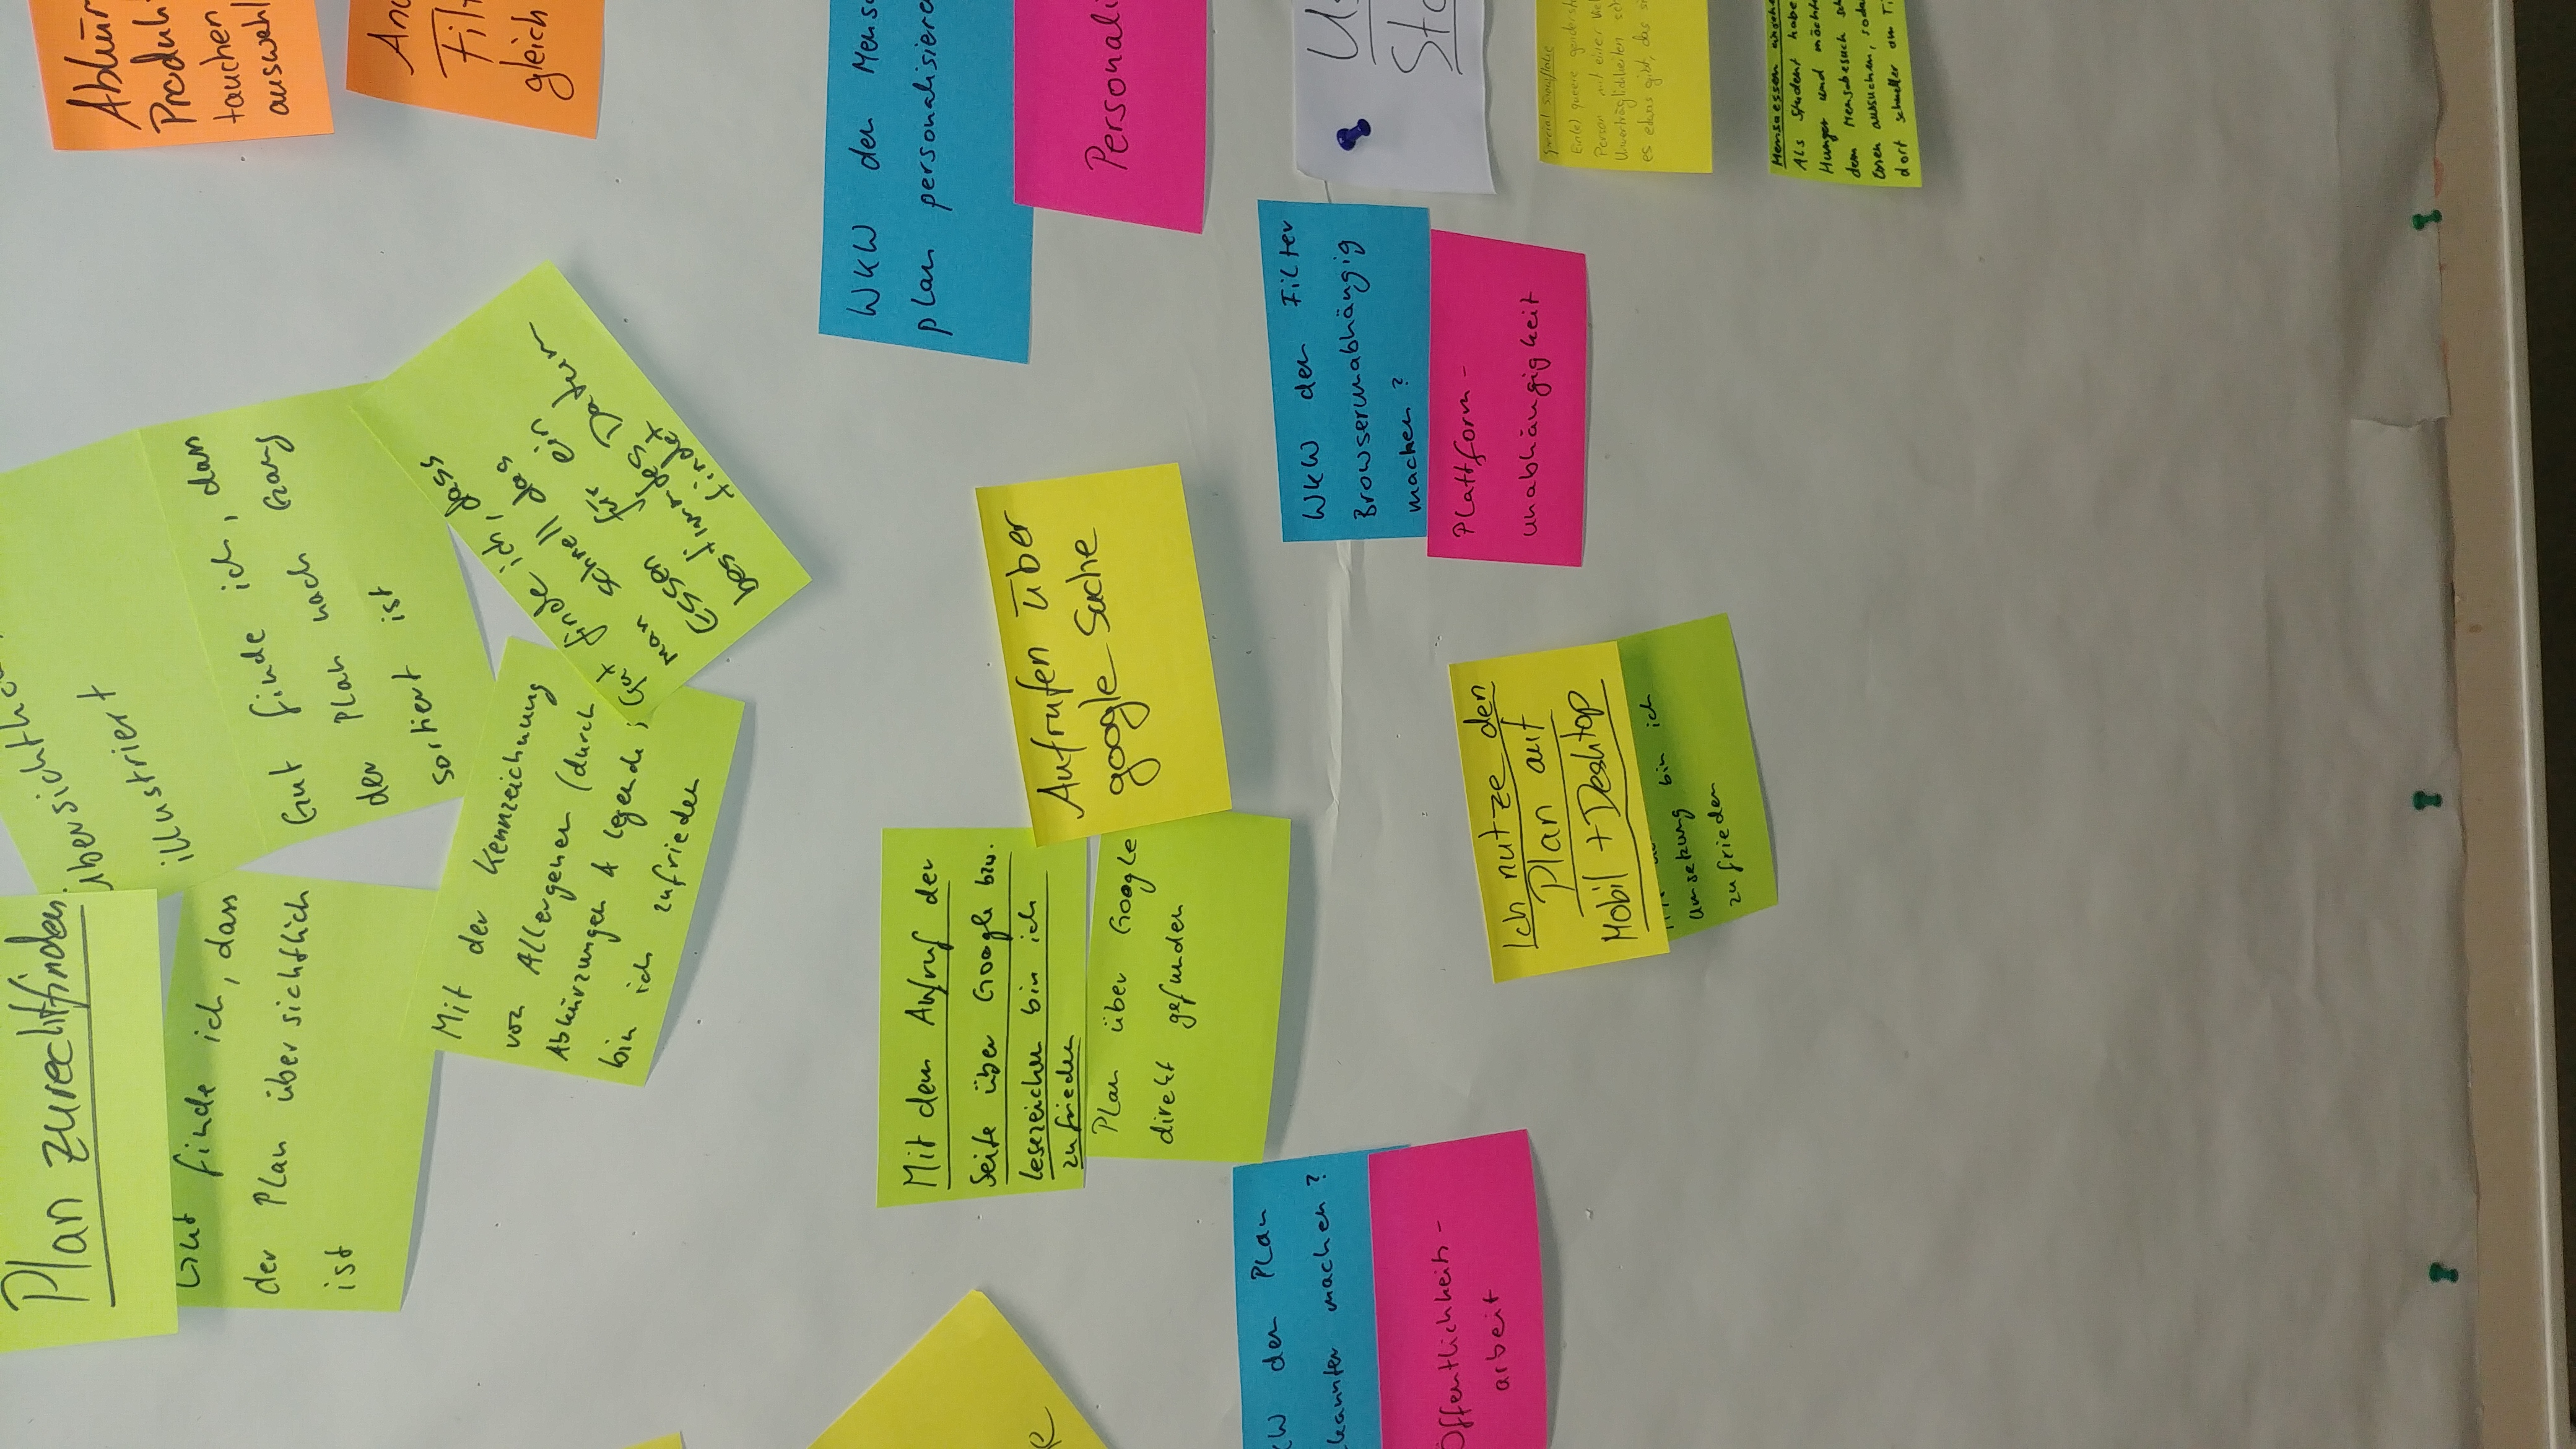 Plan zurechtfinden
illustriert
Gut finde ich, dass
der Plan übersichtlich
ist
Gut finde ich, dass
der Plan nach Gang
sortiert ist
Mit der Kennzeichnung
von Allergenen (durch
Abkürzungen & Legende)
bin ich zufrieden
Gut finde ich, dass
man schnell das
Essen für ein
bestimmdes Datum
findet
Abkür
Produk
tauchen
auswahl
And
Filt
gleich
WKW den Mensa
plan personalisiere
Personali
Mit dem Aufruf der
Seite über Google bzw.
Lesezeichen bin ich
zufrieden
Aufrufen über
google Suche
Plan über Google
direkt gefunden
KW den Plan
kannter machen?
Öffentlichkeits-
arbeit
WKW den Filter
Browserunabhängig
machen?
Plattform-
unabhängigkeit
Us
Sto
Ich nutze den
Plan auf
Mobil + Desktop
Umsetzung bin ich
zufrieden
Special Snowflake
Ein(e) queere genderst
Person mit einer Viel
Unverträglichkeiten sch
es etwas gibt, das si
Mensaessen
Als Student habe
Hunger und möchte
dem Mensabesuch sch
Essen aussuchen, soda
dort schneller am Ti